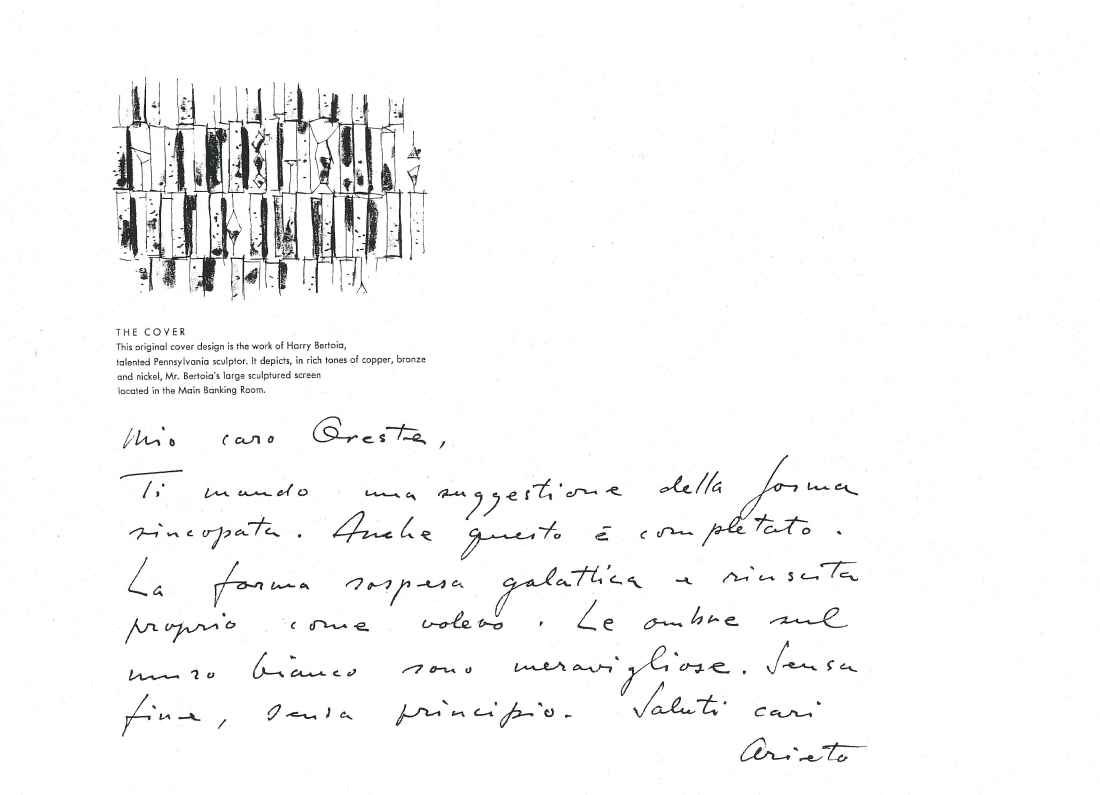 THE COVER
This original cover design is the work of Harry Bertoia,
talented Pennsylvania sculptor. It depicts, in rich tones of copper, bronze
and nickel, Mr. Bertoia's large sculptured screen
located in the Main Banking Room.
Mio caro Oreste,
Ti mando una suggestione della forma
sincopata. Anche questo è completato.
La forma sospesa galattica e riuscita
proprio come volevo. Le ombre sul
muro bianco sono meravigliose. Sensa
fine, sensa principio. Saluti cari
Arieto